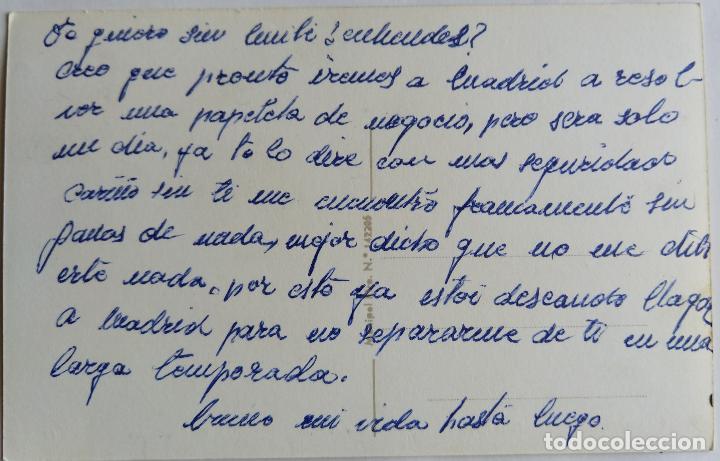 Te quiero sin limite ¿entiendes?
Creo que pronto iremos a Madrid a resol-
ver una papeleta de negocio, pero sera solo
un dia, ya te lo dire con mas seguridad
cariño sin ti me encuentro francamente sin
ganas de nada, mejor dicho que no me divi
erte nada, por esto ya estoi deseando llegar
a Madrid para no separarme de ti en una
larga temporada.
bueno mi vida hasta luego.
N.º 442205
todocoleccion.net